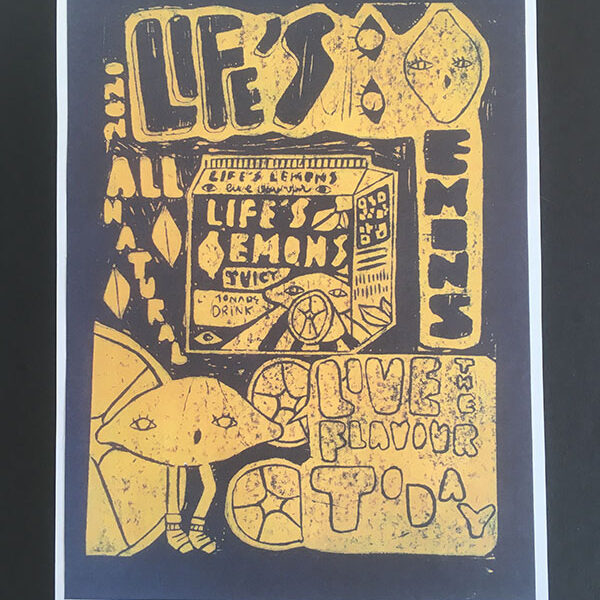 LIFE'S
EMONS
2020
ALL
NATURAL
LIFE'S LEMONS
LIFE'S
LEMONS
DRINK
LIVE
THE
FLAVOUR
TODAY